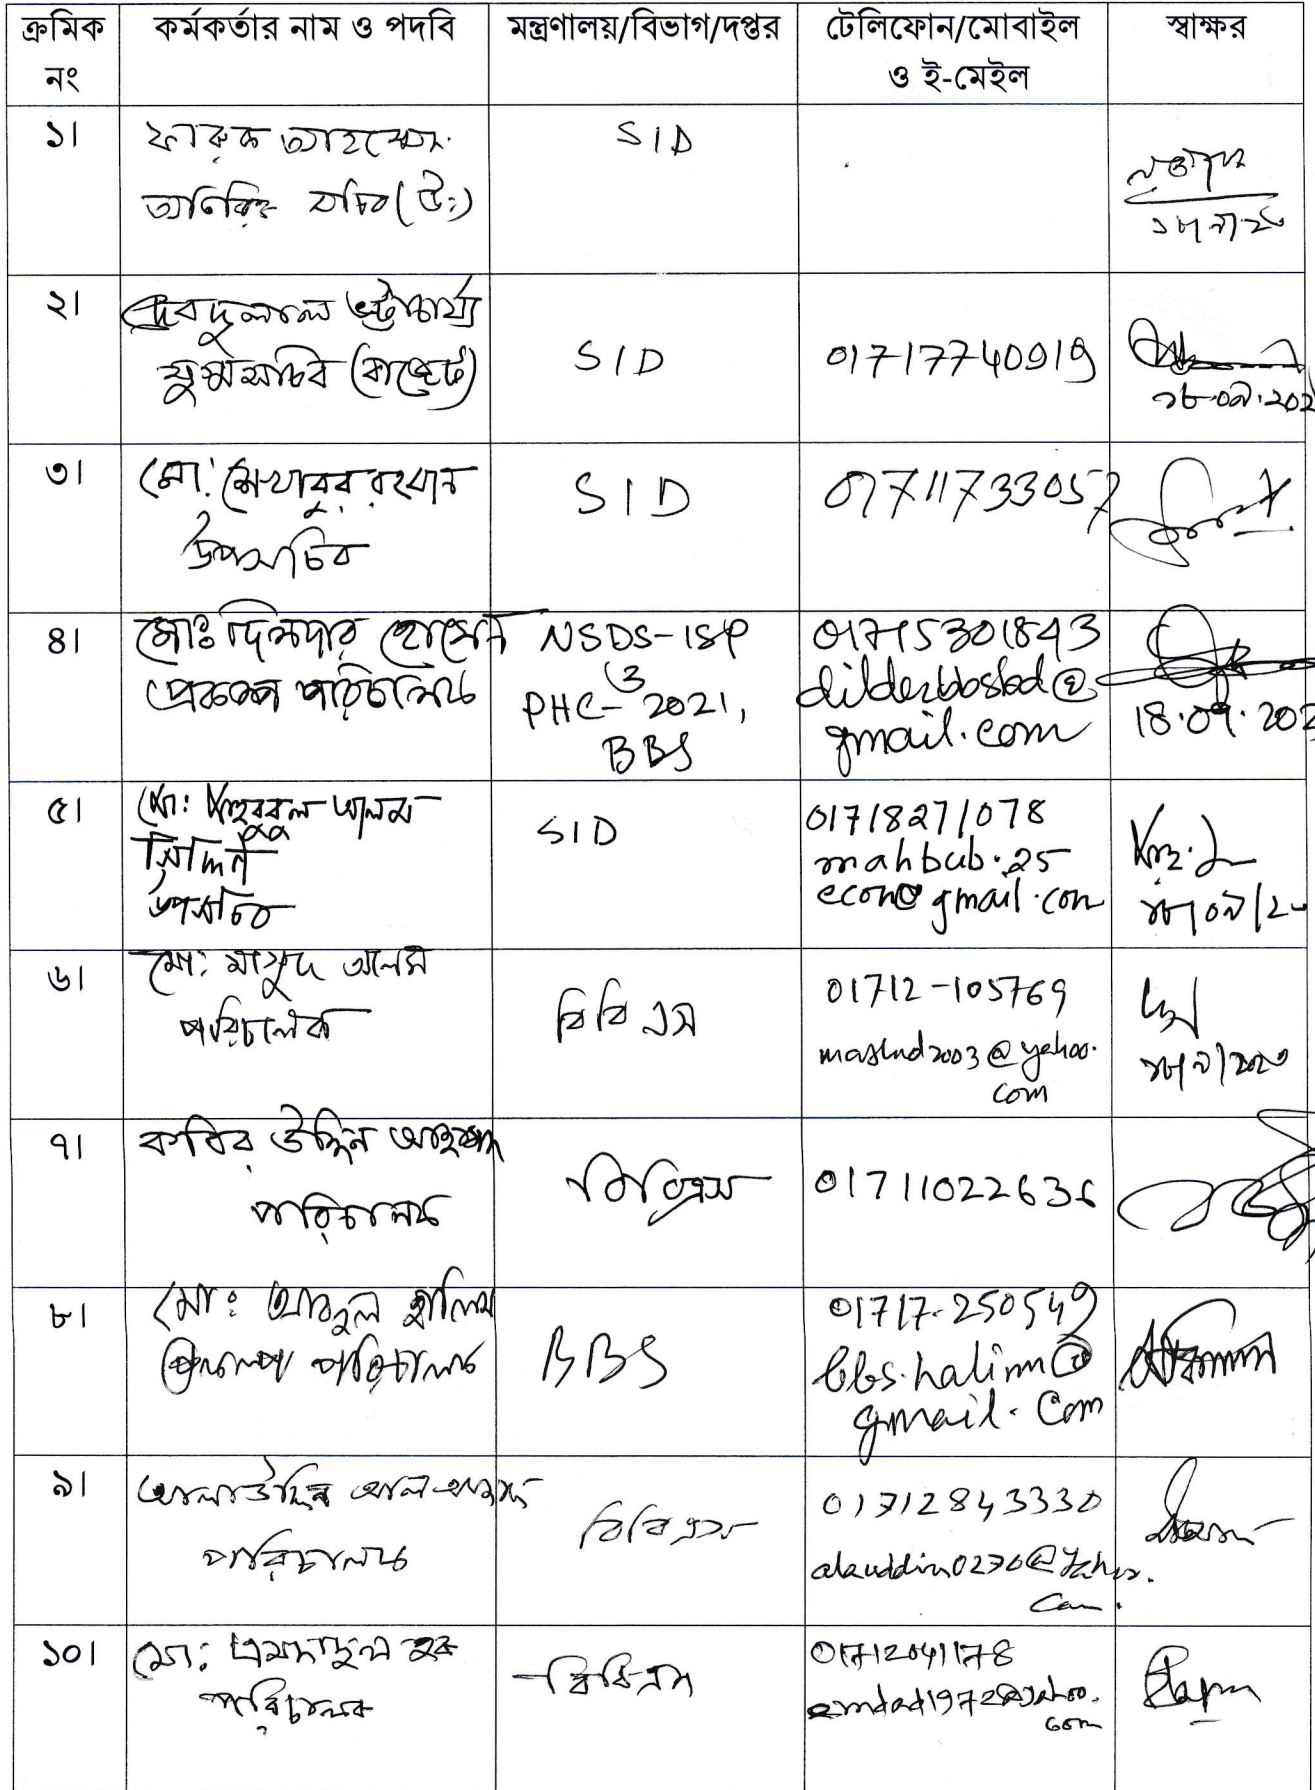 ক্রমিক নং
কর্মকর্তার নাম ও পদবি
মন্ত্রণালয়/বিভাগ/দপ্তর
টেলিফোন/মোবাইল ও ই-মেইল
স্বাক্ষর
১।
ফারুক আহম্মেদ
অতিরিক্ত সচিব (উঃ)
SID
২।
দেবদুলাল ভট্টাচার্য্য
যুগ্মসচিব (বাজেট)
SID
01717740919
১৮.০৯.২০২
৩।
মো: মোখাবুর রহমান
উপসচিব
SID
01711733057
৪।
মোঃ দিলদার হোসেন
প্রকল্প পরিচালক
NSDS-ISP
ও
PHC-2021,
BBS
01715301843
dilderbbsbd@
gmail.com
18.09.202
৫।
মো: মাহবুবুল আলম
সিদ্দিকী
উপসচিব
SID
01718271078
mahbub.25
econ@gmail.com
৬।
মো: মাসুদ আলম
পরিচালক
বিবিএস
01712-105769
masud2003@yahoo.
com
৭।
কবির উদ্দিন আহমেদ
পরিচালক
বিবিএস
01711022636
৮।
মো: আবদুল হালিম
প্রকল্প পরিচালক
BBS
01717-250549
bbs.halim@
gmail.Com
৯।
আলাউদ্দিন আল আজাদ
পরিচালক
বিবিএস
01712843330
alauddin0270@yahoo.
com.
১০।
মো: এমদাদুল হক
পরিচালক
বিবিএস
01712041178
emdad1972@yahoo.
com